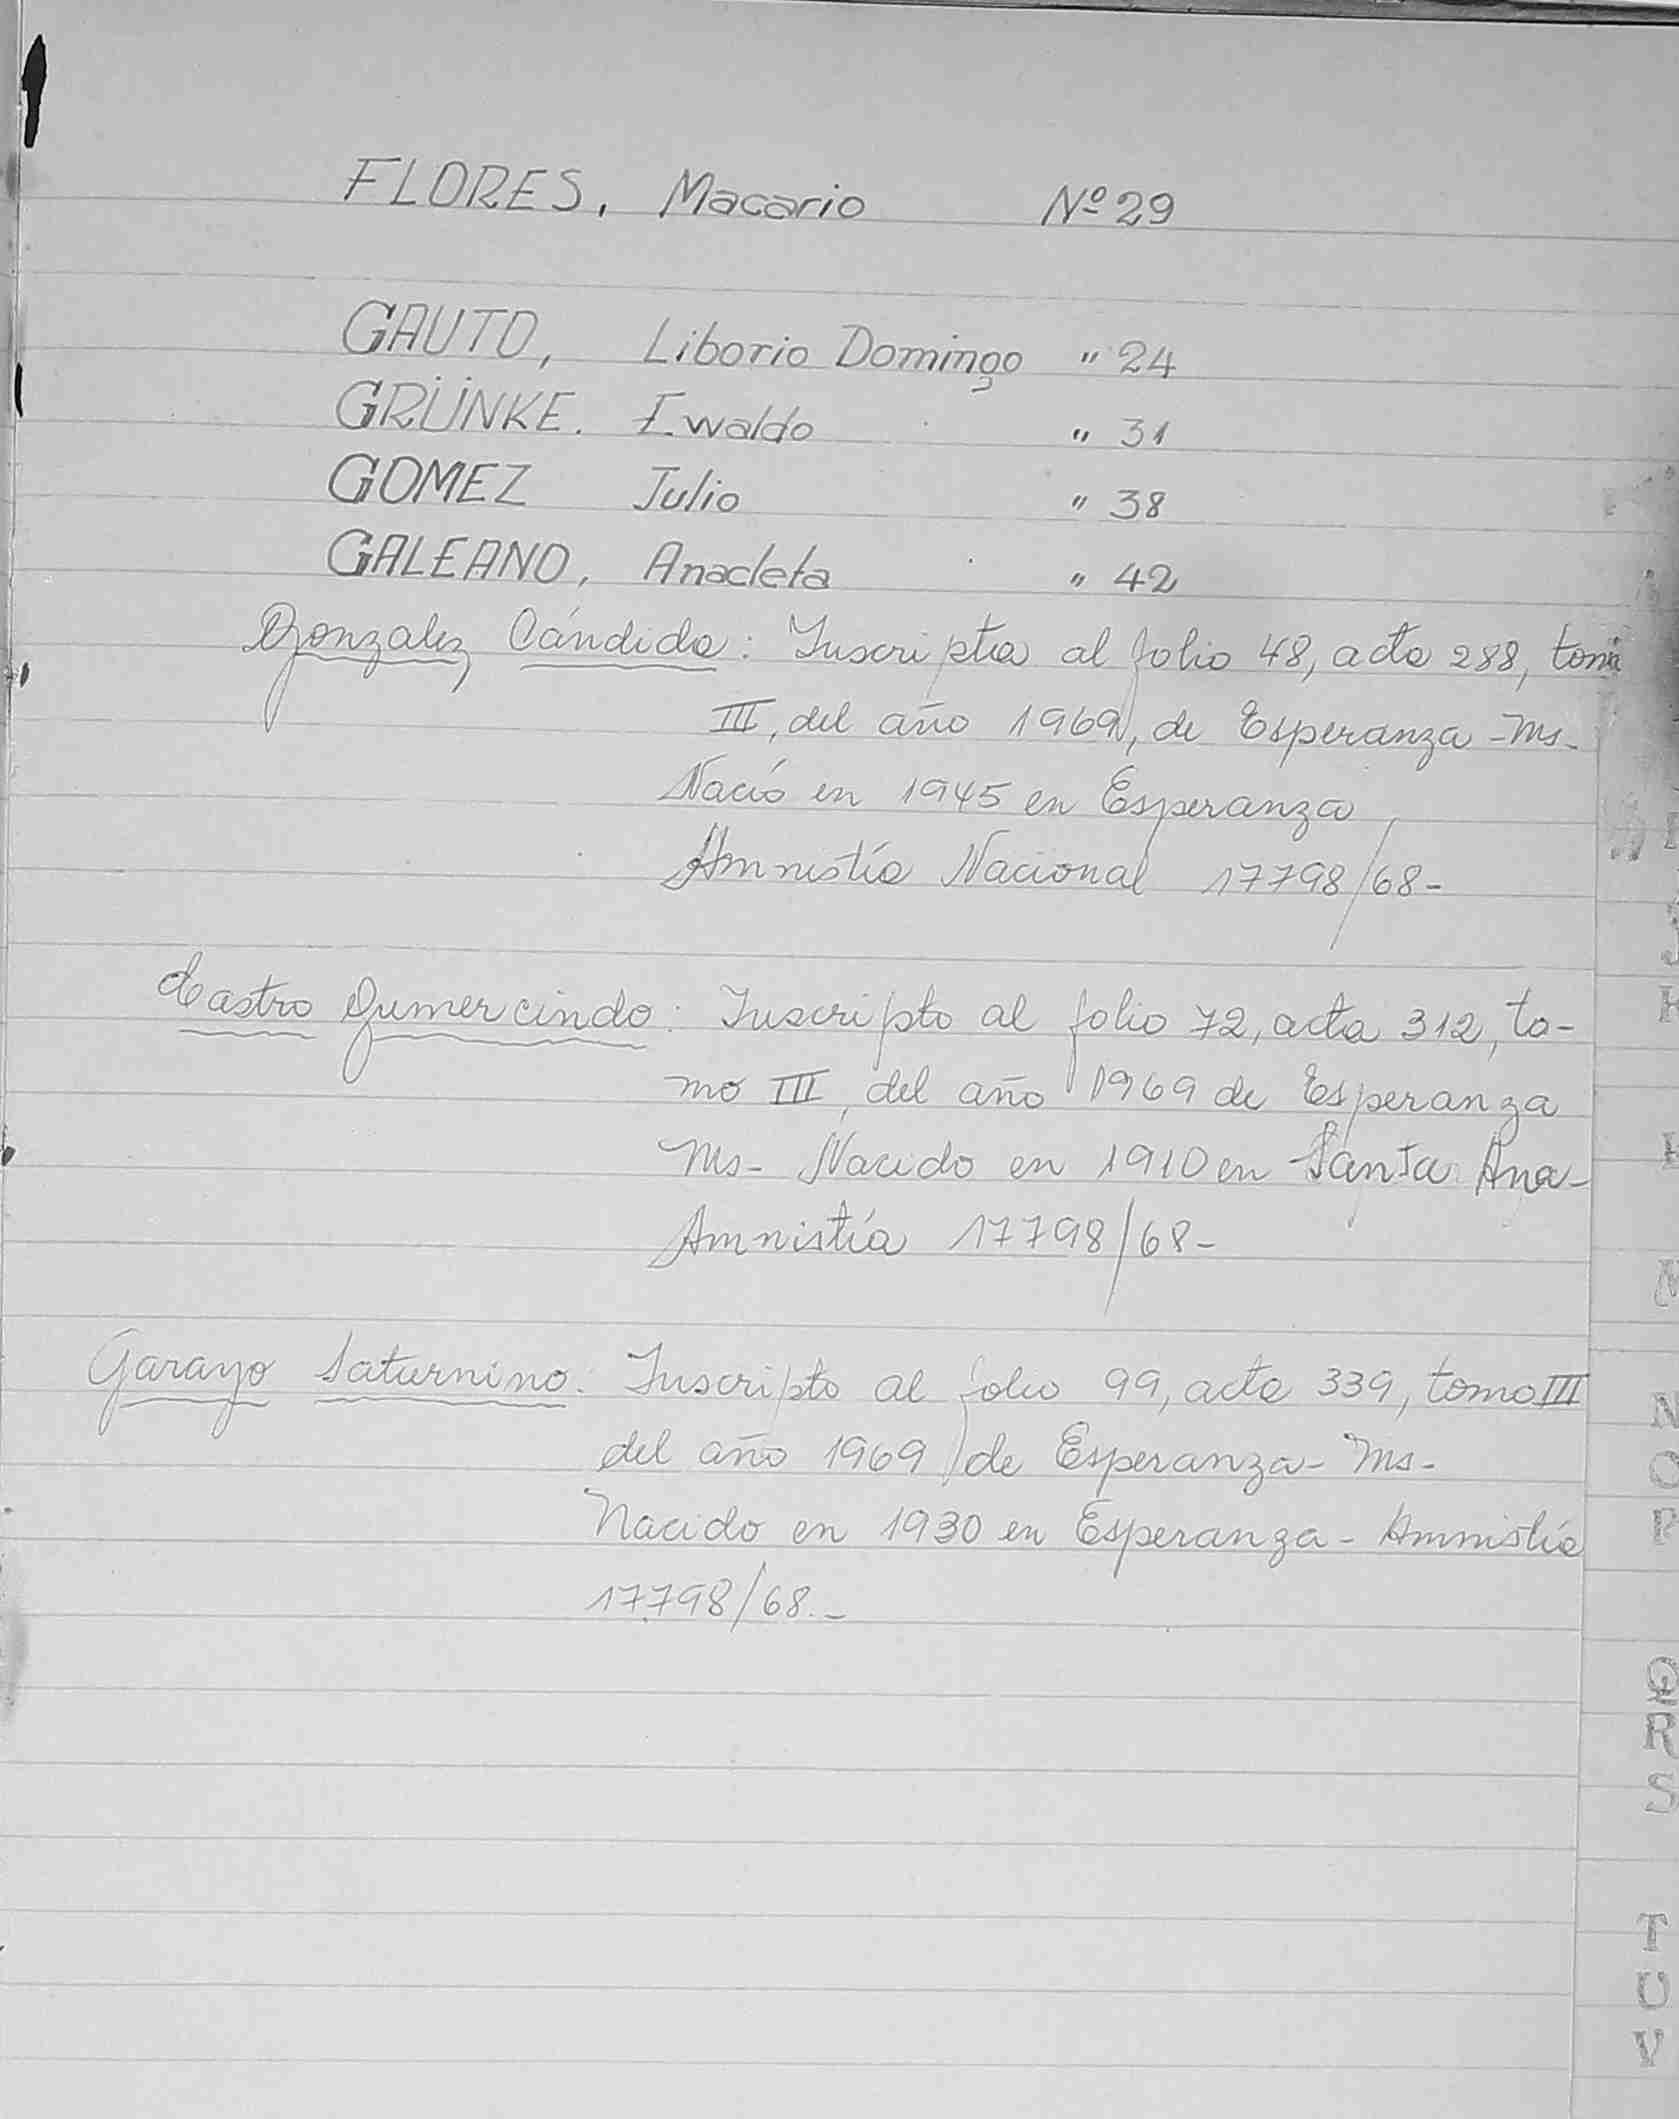 FLORES, Macario Nº 29
GAUTO, Liborio Domingo " 24
GRÜNKE. Ewaldo " 31
GOMEZ Julio " 38
GALEANO, Anacleta " 42
Gonzalez, Cándida: Inscripta al folio 48, acta 288, tomo
III, del año 1969, de Esperanza - Ms-
Nació en 1945 en Esperanza
Amnistía Nacional 17798/68-
Castro Gumercindo: Inscripto al folio 72, acta 312, to-
mo III, del año 1969 de Esperanza
Ms- Nacido en 1910 en Santa Ana-
Amnistía 17798/68-
Garayo Saturnino: Inscripto al folio 99, acta 339, tomo III
del año 1969 de Esperanza- Ms-
Nacido en 1930 en Esperanza- Amnistía
17.798/68.-
N
O
P
Q
R
S
T
U
V